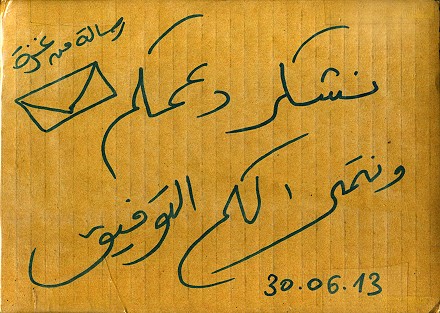 رسالة من غزة
نشكر دعمكم
ونتمنى لكم التوفيق
30.06.13